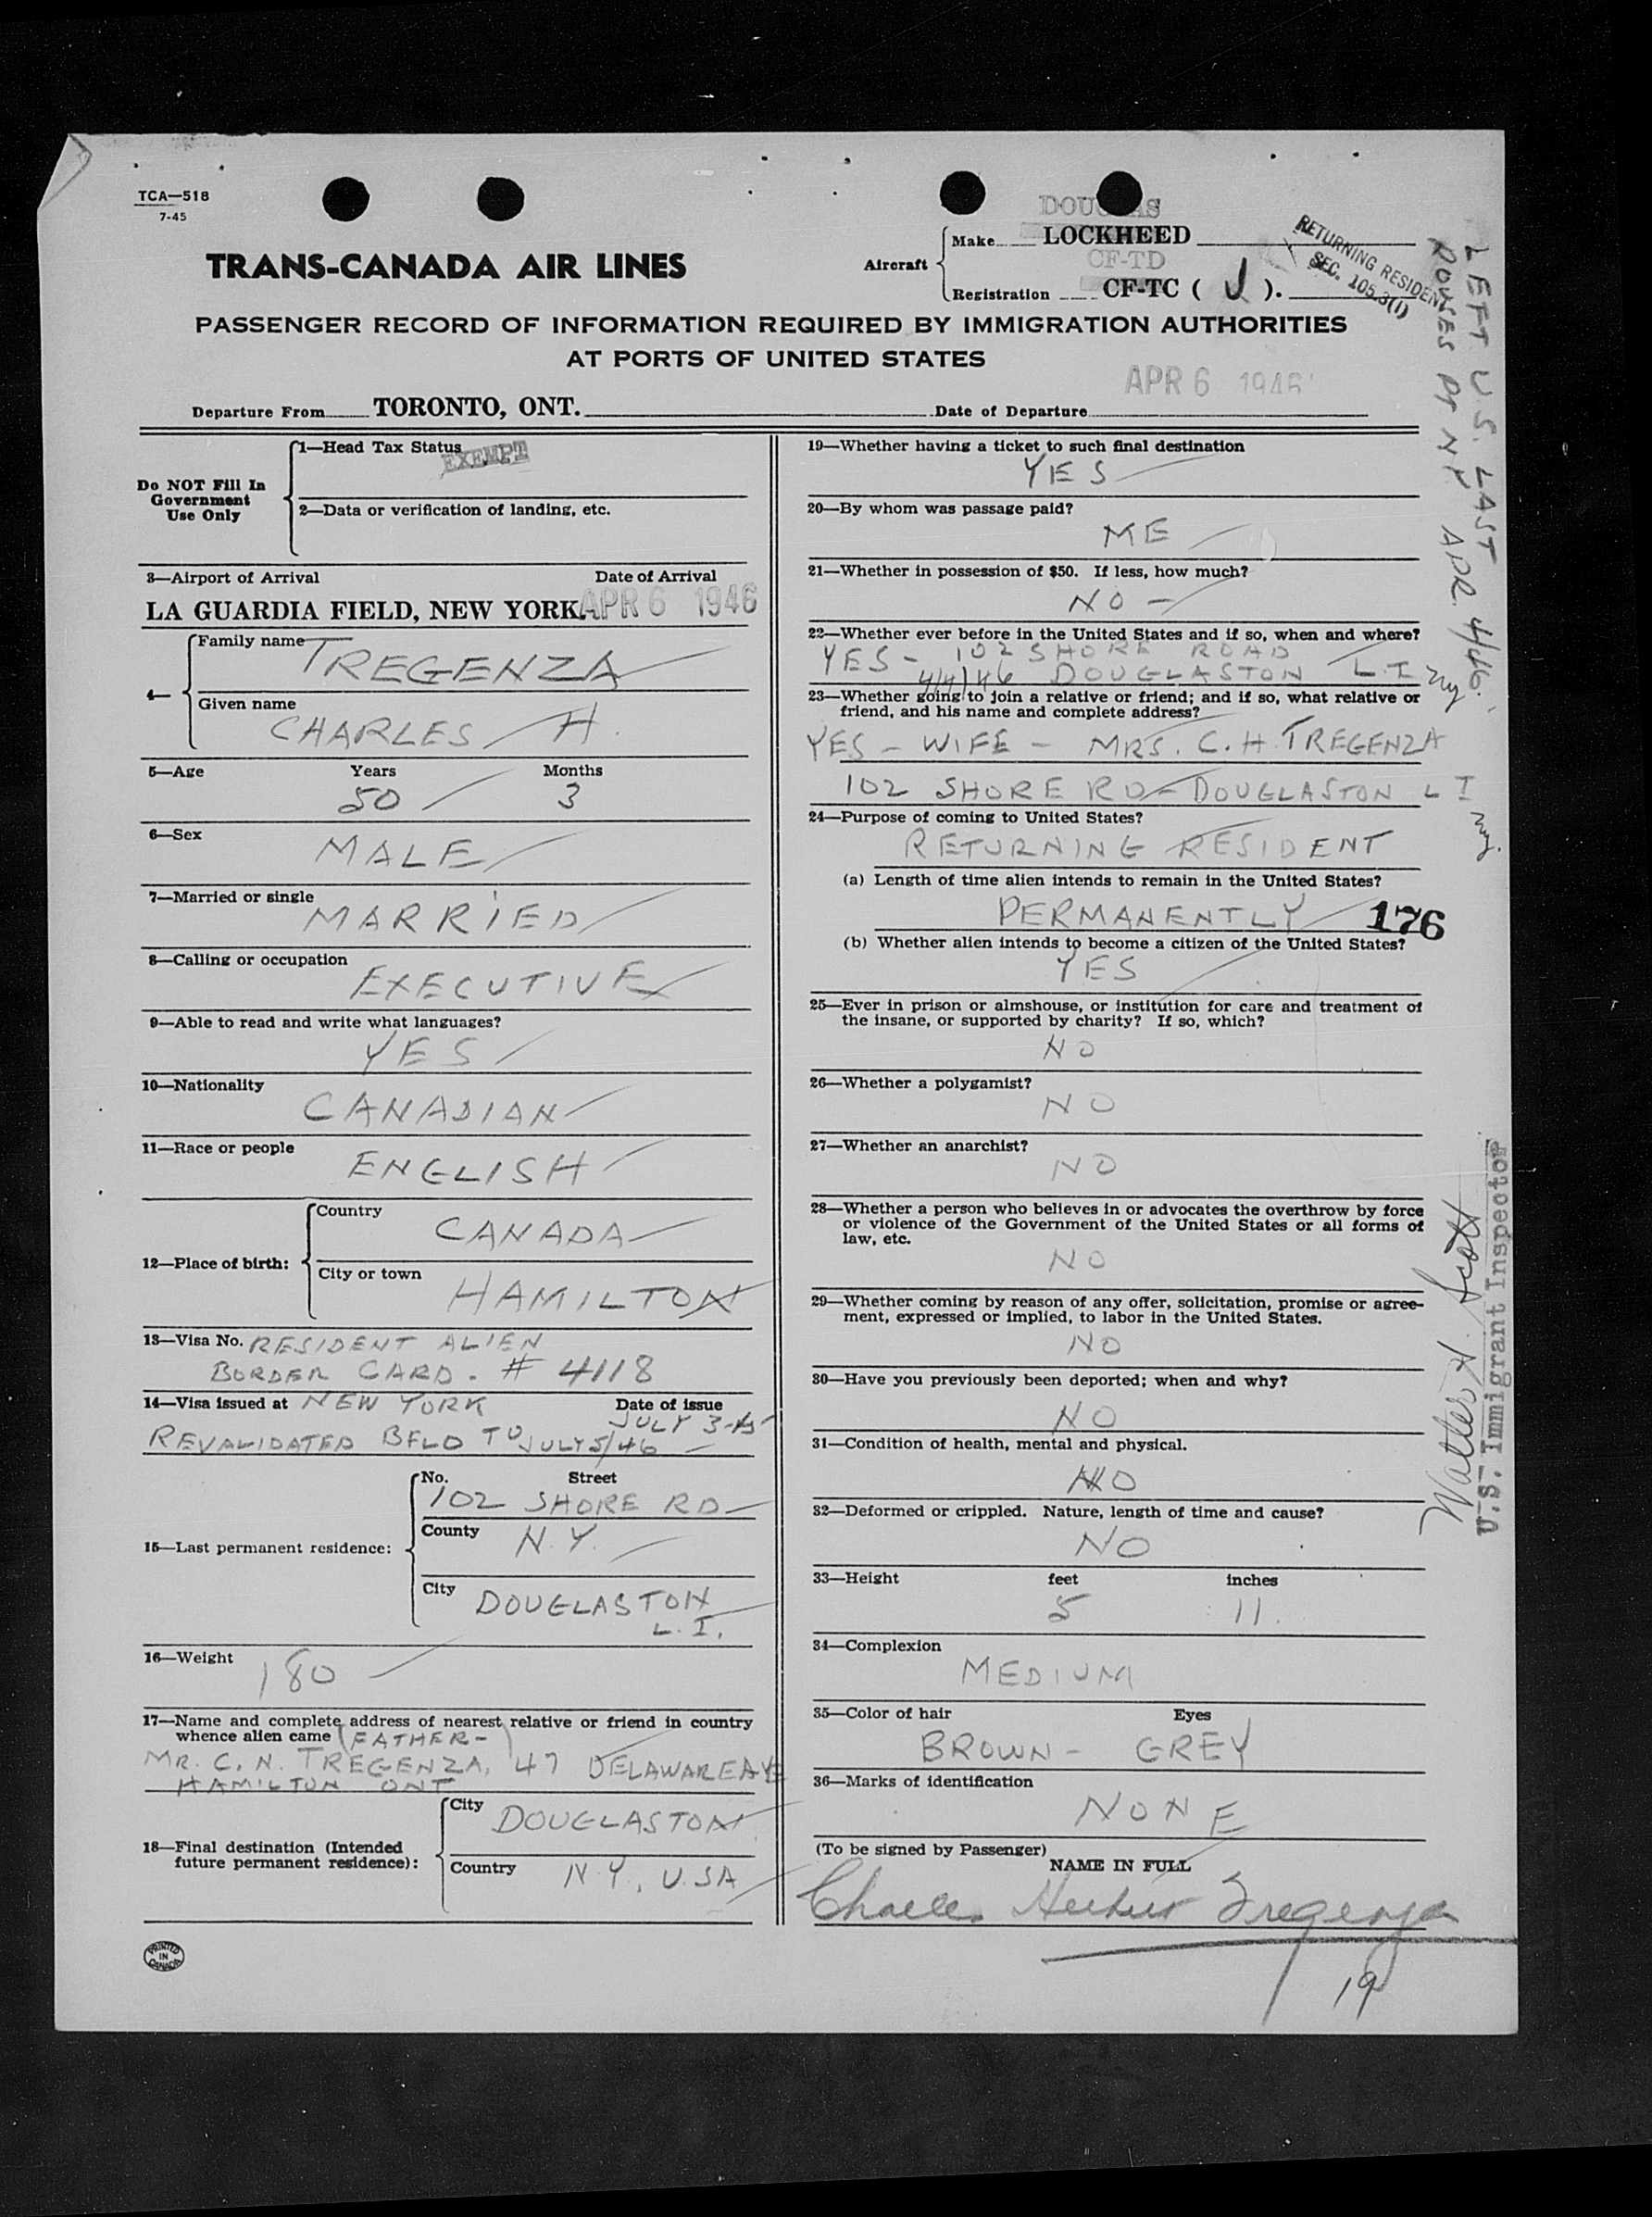 TCA—518
7-45
TRANS-CANADA AIR LINES
Aircraft
DOUGLAS
Make LOCKHEED
CF-TD
Registration CF-TC ( J ).
RETURNING RESIDENT
SEC. 105.3(1)
LEFT U.S. LAST
ROUSES PT NY APR. 4/46.
PASSENGER RECORD OF INFORMATION REQUIRED BY IMMIGRATION AUTHORITIES
AT PORTS OF UNITED STATES
APR 6 1946
Departure From TORONTO, ONT. Date of Departure
Do NOT Fill In
Government
Use Only
1—Head Tax Status
EXEMPT
2—Data or verification of landing, etc.
3—Airport of Arrival Date of Arrival
LA GUARDIA FIELD, NEW YORK. APR 6 1946
4—
Family name TREGENZA
Given name
CHARLES H.
5—Age Years Months
50 3
6—Sex
MALE
7—Married or single
MARRIED
8—Calling or occupation
EXECUTIVE
9—Able to read and write what languages?
YES
10—Nationality
CANADIAN
11—Race or people
ENGLISH
12—Place of birth:
Country
CANADA
City or town
HAMILTON
13—Visa No. RESIDENT ALIEN
BORDER CARD. # 4118
14—Visa issued at NEW YORK Date of issue
JULY 3-45
REVALIDATED BFLO TO JULY 5/46
15—Last permanent residence:
No. Street
102 SHORE RD
County N.Y.
City DOUGLASTON
L.I.
16—Weight
180
17—Name and complete address of nearest relative or friend in country
whence alien came (FATHER-)
MR. C. N. TREGENZA, 47 DELAWARE AVE
HAMILTON ONT
18—Final destination (Intended
future permanent residence):
City
DOUGLASTON
Country N.Y., U.S.A
PRINTED
IN
CANADA
19—Whether having a ticket to such final destination
YES
20—By whom was passage paid?
ME
21—Whether in possession of $50. If less, how much?
NO -
22—Whether ever before in the United States and if so, when and where?
YES - 102 SHORE ROAD
4/4/46 DOUGLASTON L.I NY
23—Whether going to join a relative or friend; and if so, what relative or
friend, and his name and complete address?
YES - WIFE - MRS. C. H. TREGENZA
102 SHORE RD - DOUGLASTON L I
NY.
24—Purpose of coming to United States?
RETURNING RESIDENT
(a) Length of time alien intends to remain in the United States?
PERMANENTLY 176
(b) Whether alien intends to become a citizen of the United States?
YES
25—Ever in prison or almshouse, or institution for care and treatment of
the insane, or supported by charity? If so, which?
NO
26—Whether a polygamist?
NO
27—Whether an anarchist?
NO
28—Whether a person who believes in or advocates the overthrow by force
or violence of the Government of the United States or all forms of
law, etc.
NO
29—Whether coming by reason of any offer, solicitation, promise or agree-
ment, expressed or implied, to labor in the United States.
NO
30—Have you previously been deported; when and why?
NO
31—Condition of health, mental and physical.
NO
32—Deformed or crippled. Nature, length of time and cause?
NO
33—Height feet inches
5 11.
34—Complexion
MEDIUM
35—Color of hair Eyes
BROWN - GREY
36—Marks of identification
NONE
(To be signed by Passenger)
NAME IN FULL
Charles Herbert Tregenza
19
Walter H. Scott
U.S. Immigrant Inspector